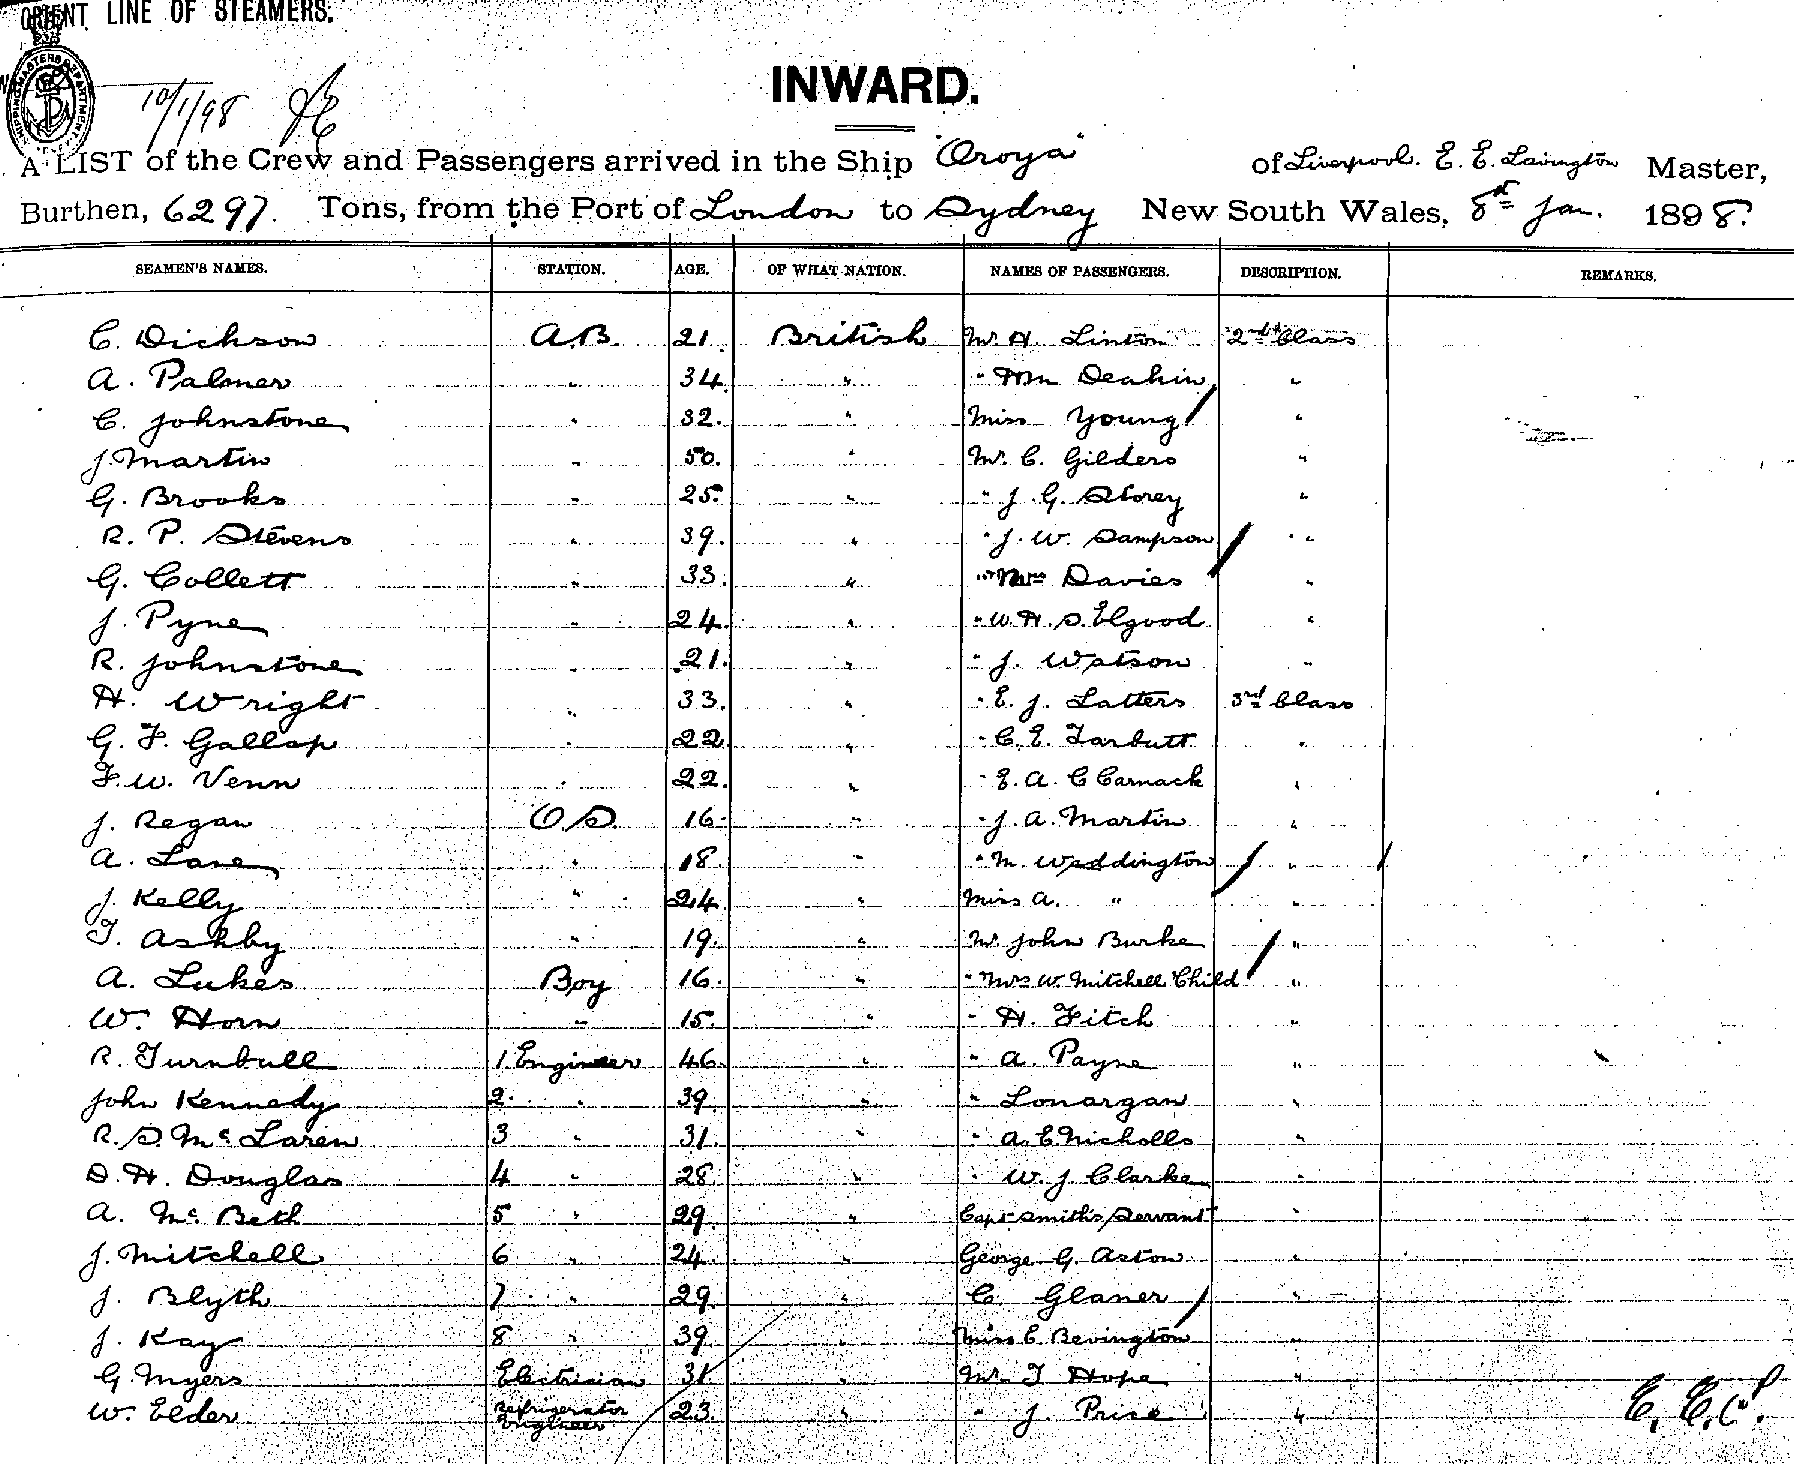 ORIENT LINE OF STEAMERS.
SHIPPING MASTERS DEPARTMENT
10/1/98
INWARD.
A LIST of the Crew and Passengers arrived in the Ship "Oroya" of Liverpool. E. E. Lavington Master,
Burthen, 6297. Tons, from the Port of London to Sydney New South Wales, 8th Jan. 1898.
SEAMEN'S NAMES. STATION. AGE. OF WHAT NATION. NAMES OF PASSENGERS. DESCRIPTION. REMARKS.
C. Dickson A.B. 21. British Mr. H. Linton 2nd Class
A. Palmer " 34. " " Deakin "
C. Johnstone " 32. " Miss Young "
J. Martin " 50. " Mr. C. Gilders "
G. Brooks " 25. " " J. G. Storey "
R. P. Stevens " 39. " " J. W. Sampson "
G. Collett " 33. " " Mrs Davies "
J. Pyne " 24. " " W. H. S. Elgood "
R. Johnstone " 21. " " J. Watson "
H. Wright " 33. " " E. J. Latters 3rd Class
G. F. Gallop " 22 " " C. E. Tarbutt "
F. W. Venn " 22. " " E. A. C Carnack "
J. Regan O.S. 16. " " J. A. Martin "
A. Lane " 18. " " M. Waddington "
J. Kelly " 24. " Miss A. " "
T. Ashby " 19. " Mr. John Burke "
A. Lukes Boy 16. " " Mrs W. Mitchell Child "
W. Horn " 15. " " H. Fitch "
R. Turnbull 1. Engineer 46. " " A. Payne "
John Kennedy 2. " 39. " " Lonargan "
R. S. Mc Laren 3 " 31. " " A. E Nicholls "
D. H. Douglas 4 " 28. " " W. J. Clarke "
A. Mc Beth 5 " 29. " Capt Smith's Servant "
J. Mitchell 6 " 24. " George G. Aston "
J. Blyth 7 " 29. " C. Glaner "
J. Kay 8 " 39. " Miss C. Bevington "
G. Myers Electrician 31 " Mr. T Hope "
W. Elder Refrigerator Engineer 23. " " J. Price "